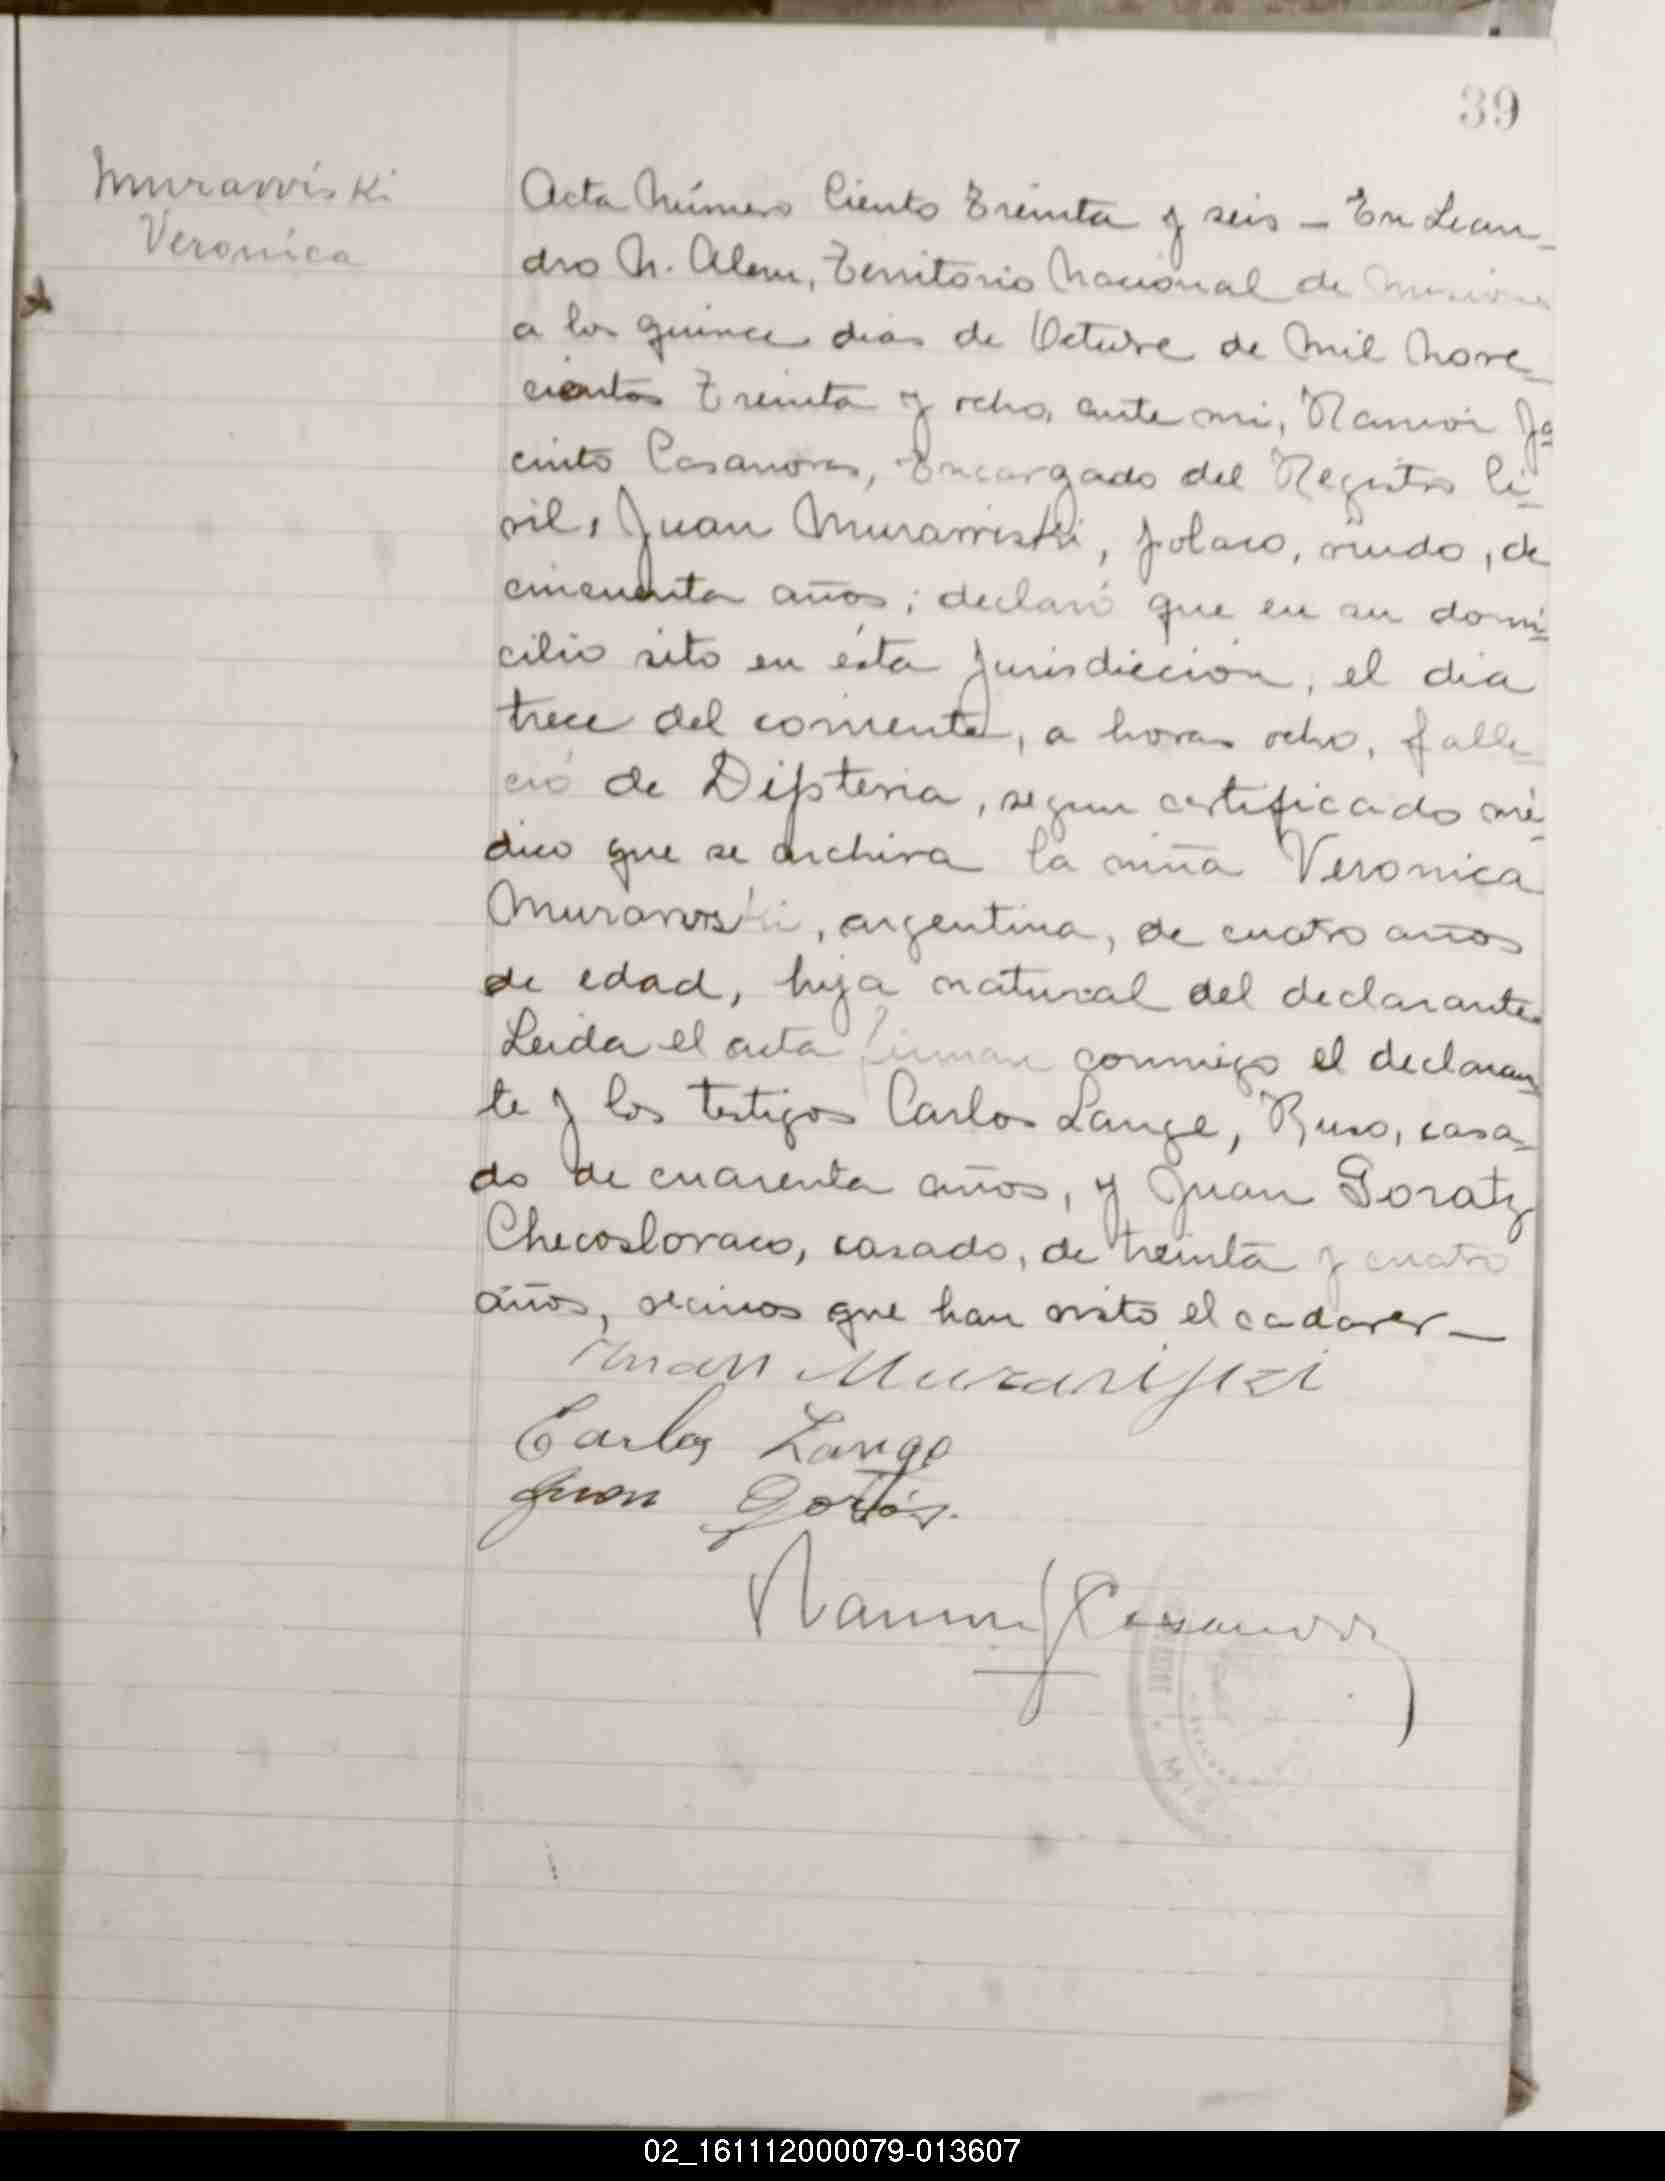 39
Murawiski
Veronica
Acta Número Ciento Treinta y seis - En Lean-
dro N. Alem, Territorio Nacional de Misiones
a los quince dias de Octubre de Mil Nove-
cientos Treinta y ocho, ante mi, Ramón Ja-
cinto Casanova, Encargado del Registro Ci-
vil, Juan Murawiski, polaco, viudo, de
cincuenta años; declaró que en su domi-
cilio sito en ésta Jurisdicción, el dia
trece del corriente, a horas ocho, falle-
ció de Difteria, segun certificado mé-
dico que se archiva la niña Veronica
Murawiski, argentina, de cuatro años
de edad, hija natural del declarante.
Leida el acta firman conmigo el declaran-
te y los testigos Carlos Lange, Ruso, casa-
do de cuarenta años, y Juan Goratz
Checoslovaco, casado, de treinta y cuatro
años, vecinos que han visto el cadaver-
Juan Murariski
Carlos Lange
Juan
Ramon J Casanova
02_161112000079-013607